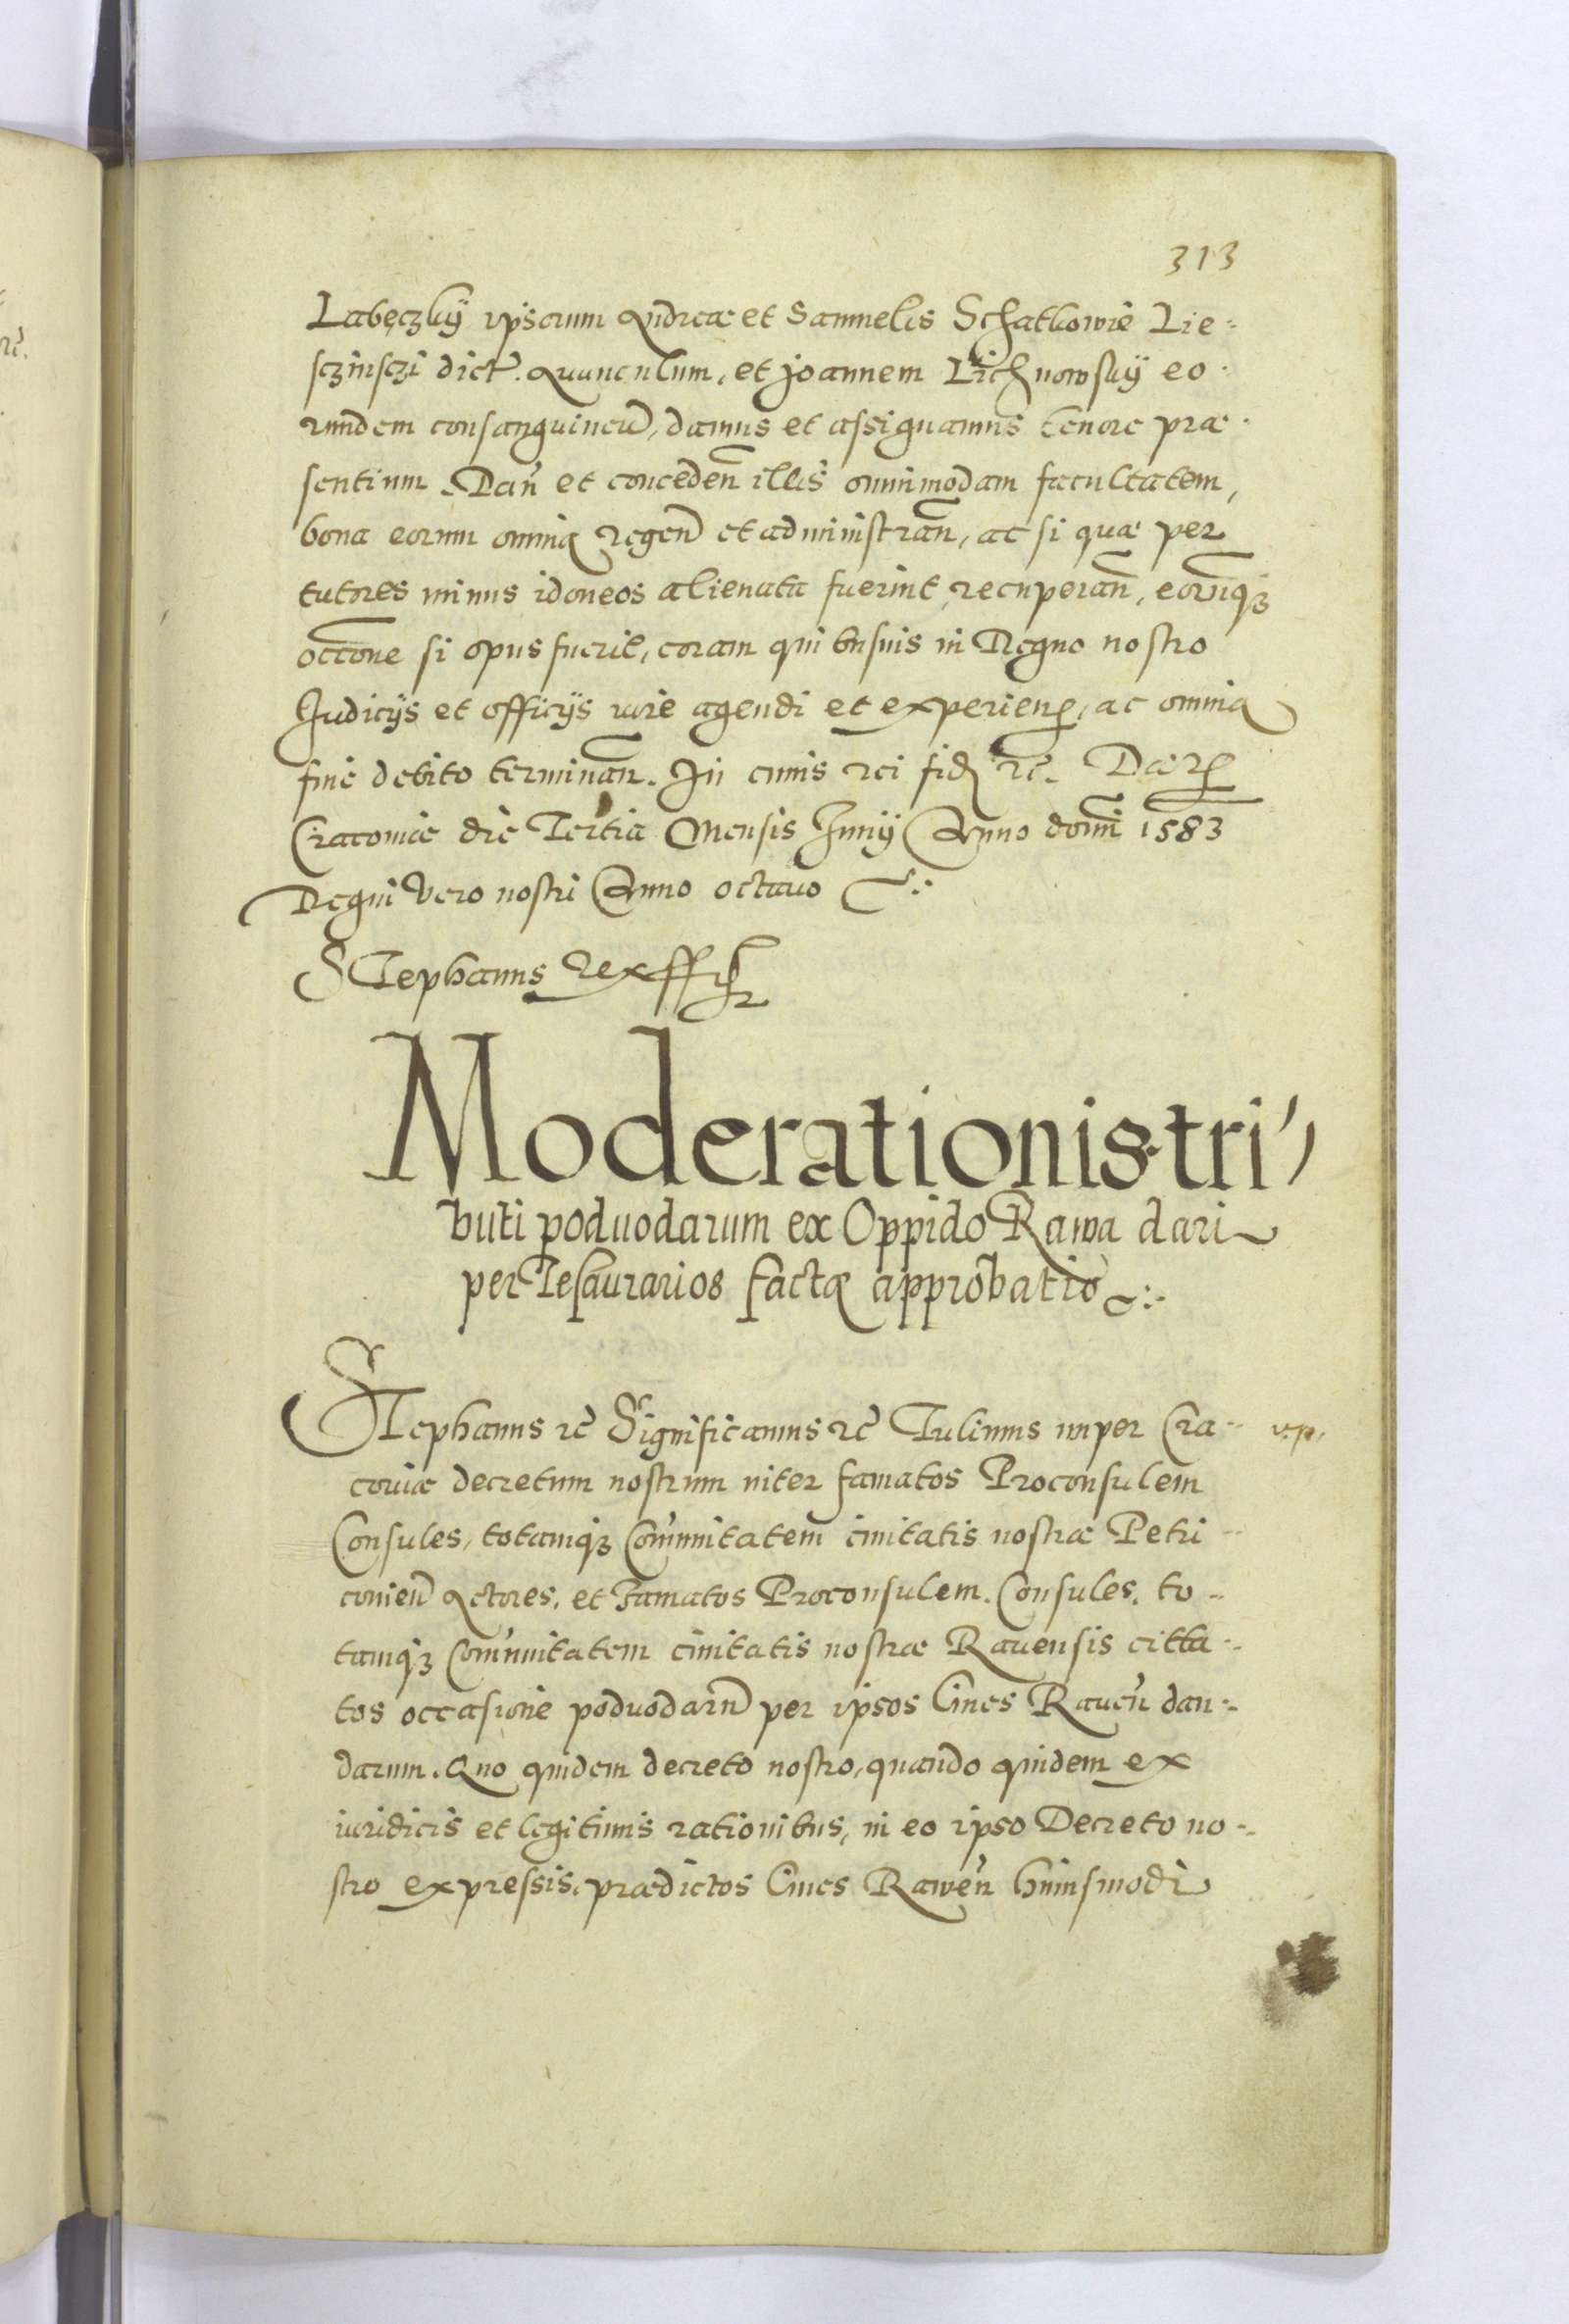 313
Labęczkÿ ipsorum Andreæ et Samuelis Schatkowie Lie:
sczinsczi dict. Auunculum, et Joannem Lichnowskÿ eo.
rundem consanguineū, damus et assignamus tenore præ.
sentium. Dań et conceden̄ illis omnimodam facultatem,
bona eorum omnia regeñ et administran̄, ac si quæ per
tutores minus idoneos alienata fuerint recuperan̄, eorūq3
occōne si opus fuerit, coram quibusuis in Regno nostro
Judicÿs et officÿs iure agendi et experien, ac omnia
fine debito terminan̄. In cuius rei fid rc̄. Dat
Cracouiæ die Tertia Mensis Junÿ Anno domī 1583
Regni vero nostri Anno octauo
Stephanus Rex sst
Moderationis tri,
buti poduodarum ex Oppido Rawa dari
per Tesaurarios factæ approbatio
Stephanus rc̄ Significamus rc̄ Tulimus nuper Cra-
couiæ decretum nostrum inter famatos Proconsulem
Consules, totamq3 Com̄unitatem ciuitatis nostræ Petri-
couień Actores, et Famatos Proconsulem. Consules, to-
tamq3 Com̄unitatem ciuitatis nostræ Rauensis citta-
tos occasione poduodarū per ipsos Ciues Raueń dan-
darum. Quo quidem decreto nostro, quando quidem ex
iuridicis et legitimis rationibus, in eo ipso Decreto no-
stro expressis, prædictos Ciues Raweń huiusmodi